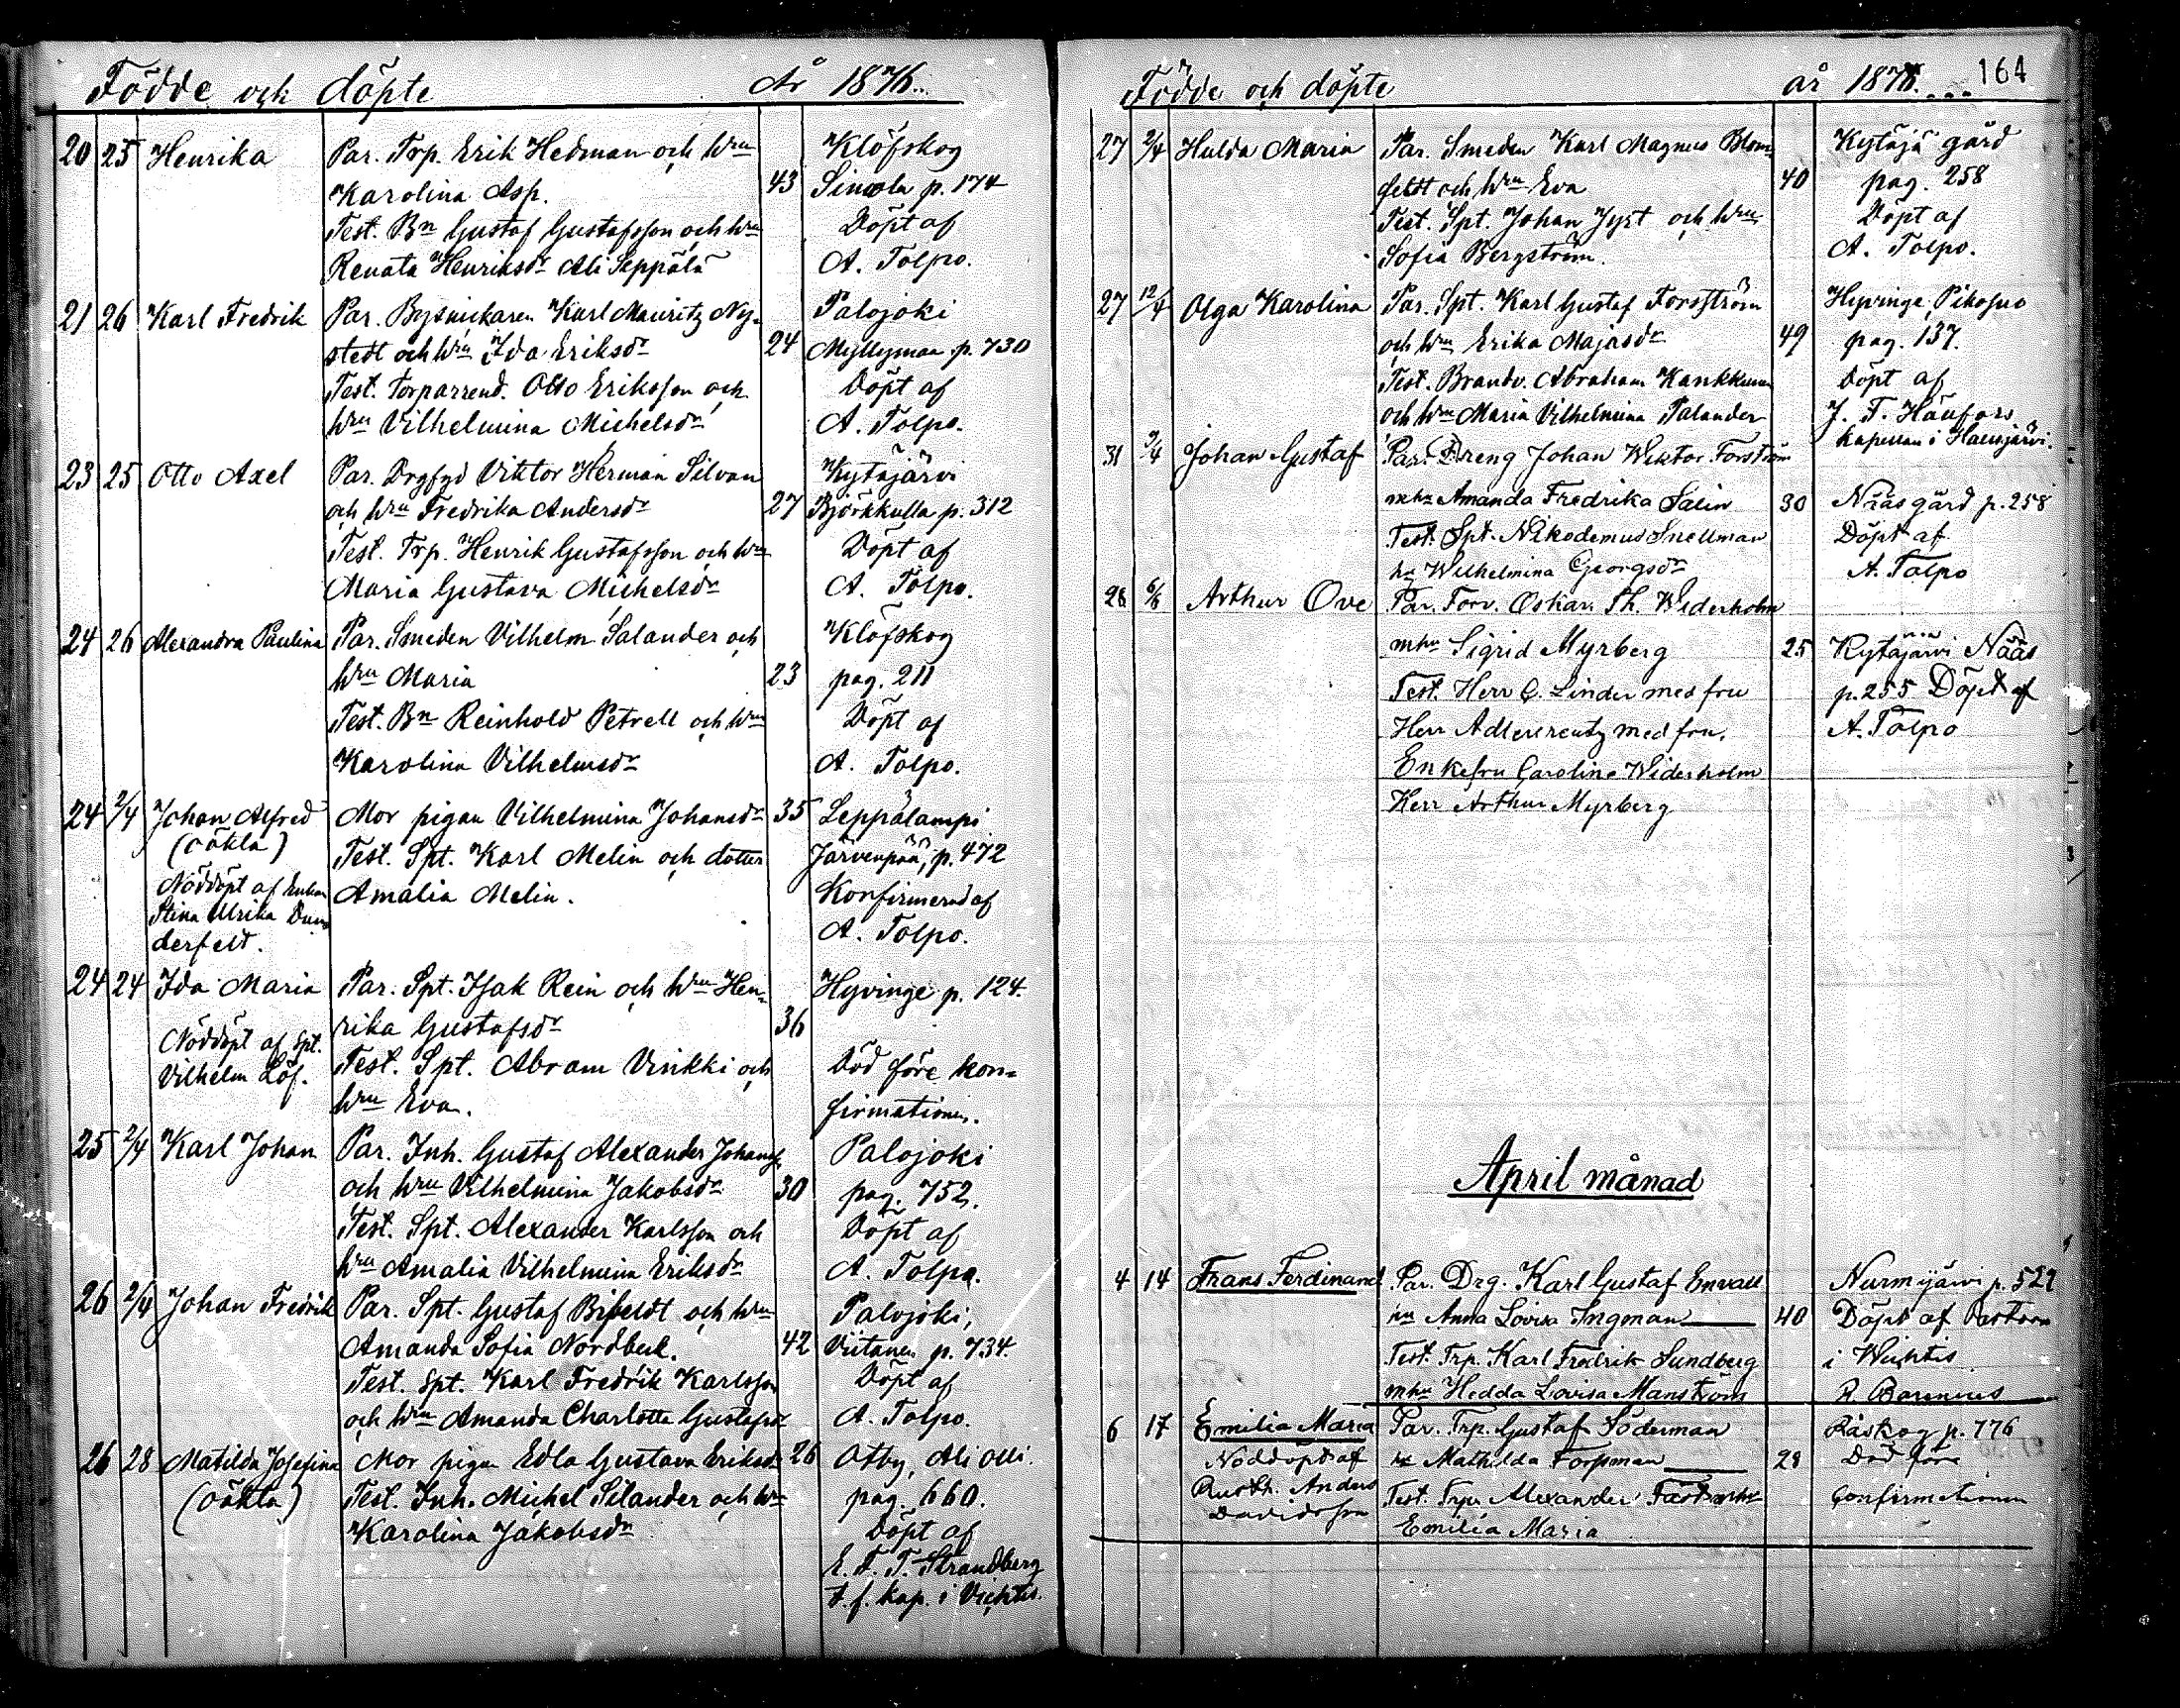 Födde och döpte År 1876.
20 25 Henrika Par. Trp. Erik Hedman och hru Klöfskog
Karolina Asp. 43 Simola p. 174
Test. Bn Gustaf Gustafsson och hru Döpt af
Renata Henriksdr Ali Seppälä A. Tolpo.
21 26 Karl Fredrik Par. Bysnickaren Karl Mauritz Ny- Palojoki
stedt och hru Ida Eriksdr 24 Myllymaa p. 730
Test. torparrend. Otto Eriksson och Döpt af
hru Vilhelmina Michelsdr A. Tolpo.
23 25 Otto Axel Par. Drgfgd Viktor Herman Silvan Kytäjärvi
och hru Fredrika Andersdr 27 Björkkulla p. 312
Test. Trp. Henrik Gustafsson och hru Döpt af
Maria Gustava Michelsdr A. Tolpo.
24 26 Alexandra Paulina Par. Smeden Vilhelm Salander och Klöfskog
hru Maria 23 pag. 211
Test. Bn Reinhold Petrell och hru Döpt af
Karolina Vilhelmsdr A. Tolpo.
24 2/4 Johan Alfred Mor pigan Vilhelmina Johansdr 35 Leppälampi
(oäkta) Test. Spt. Karl Melin och dotter Järvenpää, p. 472
Nöddöpt af Enkan Amalia Melin. Konfirmerad af
Stina Ulrika Dun- A. Tolpo.
derfelt.
24 24 Ida Maria Par. Spt. Isak Rein och hru Hen- Hyvinge p. 124.
rika Gustafsdr 36
Nöddöpt af Spt. Test. Spt. Abram Vinkki och Död före kon-
Vilhelm Löf. hru Eva. firmationen.
25 2/4 Karl Johan Par. Inh. Gustaf Alexander Johanss. Palojoki
och hru Vilhelmina Jakobsdr 30 pag. 752.
Test. Spt. Alexander Karlsson och Döpt af
hru Amalia Vilhelmina Eriksdr A. Tolpo.
26 2/4 Johan Fredrik Par. Spt. Gustaf Bifeldt och hru Palojoki,
Amanda Sofia Nordbeck. 42 Viitanen p. 734.
Test. Spt. Karl Fredrik Karlsson Döpt af
och hru Amanda Charlotta Gustafsdr A. Tolpo.
26 28 Matilda Josefina Mor pigan Edla Gustava Eriksdr 26 Otby, Ali Olli.
(oäkta) Test. Inh. Michel Silander och hru pag. 660.
Karolina Jakobsdr Döpt af
E. F. T. Strandberg
t. f. kap. i Vichtis.
Födde och döpte år 1876. 164
27 2/4 Hulda Maria Par. Smeden Karl Magnus Blom- Kytäjä gård
feldt och hru Eva 40 pag. 258
Test. Spt. Johan Jyst och hru Döpt af
Sofia Bergström. A. Tolpo.
27 12/4 Olga Karolina Par. Spt. Karl Gustaf Forsström Hyvinge, Pikosuo
och hru Erika Majasdr 49 pag. 137.
Test. Brandv. Abraham Kankkunen Döpt af
och hru Maria Vilhelmina Talander J. F. Hänfors
31 9/4 Johan Gustaf Par. Dreng Johan Wiktor Forström kapellan i Hausjärvi.
mhu Amanda Fredrika Salin 30 Nääsgård p. 258
Test. Spt. Nikodemus Snellman Döpt af
hu Wilhelmina Georgsdr A. Tolpo
28 6/6 Arthur Ove Par. Forv. Oskar Th. Widerholm
mhu Sigrid Myrberg 25 Kytäjärvi Nääs
Test. Herr C. Linder med fru p. 255 Döpt af
Herr Adlercreutz med fru. A. Tolpo
Enkefru Caroline Widerholm
Herr Arthur Myrberg
April månad
4 14 Frans Ferdinand Par. Drg. Karl Gustaf Envall Nurmijärvi p. 529
hu Anna Lovisa Ingman 40 Döpt af Pastorn
Test. Trp. Karl Fredrik Sundberg i Wichtis
mhu Hedda Lovisa Manström R. Borenius
6 17 Emilia Maria Par. Trp. Gustaf Söderman Råskog p. 776
Nöddöpt af hu Mathilda Forsman 28 Död före
Rusth. Anders Test. Trp. Alexander Fäst mhu Confirmationen
Davidsson Emilia Maria